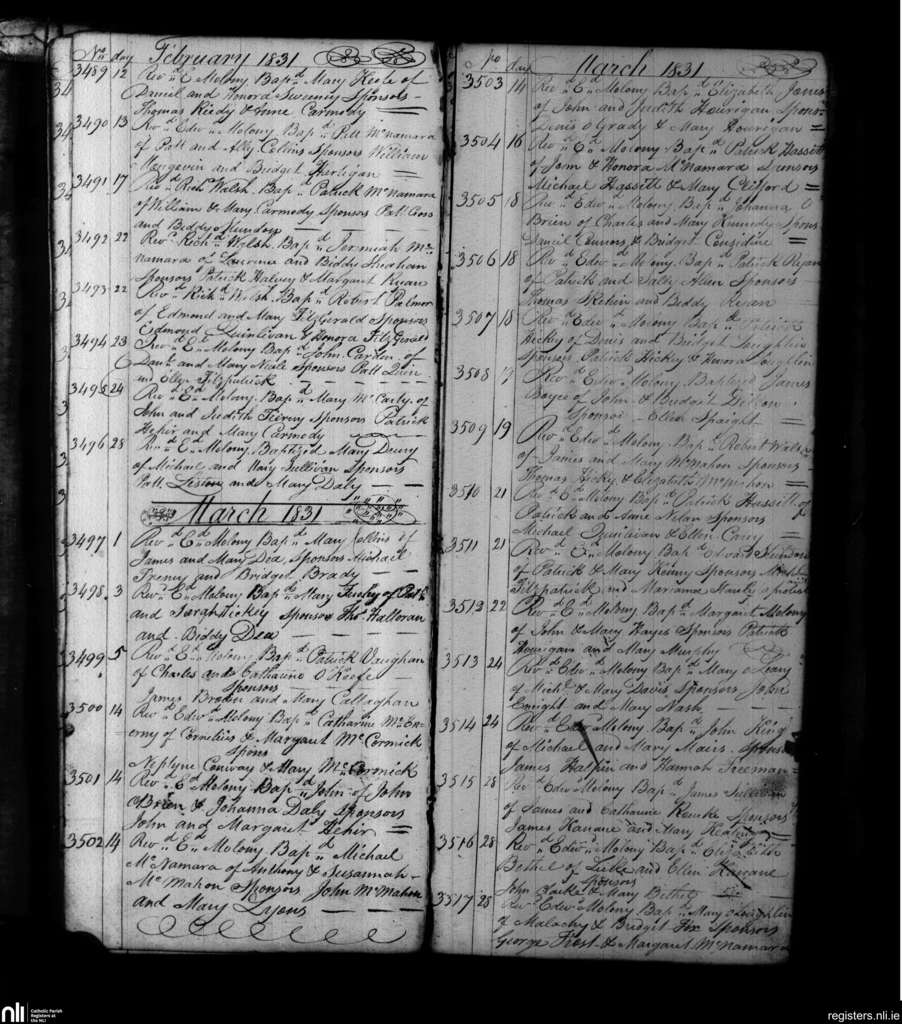 No day February 1831
3489 12 Revd. E Molony Bapd. Mary Keele of
Daniel and Honora Sweeney Sponsors
Thomas Reidy & Anne Carmody
3490 13 Revd. Edwd. Molony Bapd. Patt McNamara
of Patt and Ally Collins Sponsors William
and Bridget Hartigan
3491 17 Revd. Richd. Walsh Bapd. Patrick McNamara
of William & Mary Carmody Sponsors Patt Cross
and Biddy
3492 22 Revd. Richd. Walsh Bapd. Jeremiah Mc
namara of Laurence and Biddy Sheehan
Sponsors Patrick Halvey & Margaret Ryan
3493 22 Revd. Richd. Walsh Bapd. Robert Palmer
of Edmond and Mary FitzGerald Sponsors
Edmond Quinlivan & Honora FitzGerald
3494 23 Revd. Ed. Molony Bapd. John Carden of
Danl. and Mary Neale Sponsors Patt Quin
and Ellen Fitzpatrick
3495 24 Revd. Ed. Molony Bapd. Mary McCarty of
John and Judith Tierny Sponsors Patrick
Hehir and Mary Carmody
3496 28 Revd. Ed. Molony Baptized Mary
of Michael and Mary Sullivan Sponsors
Patt and Mary Daly
March 1831
3497 1 Revd. Ed. Molony Bapd. Mary Collins of
James and Mary Dea Sponsors Michael
Freeny and Bridget Brady
3498 3 Revd. E. Molony Bapd. Mary of Patt
and Sarah Hickey Sponsors Thos. Halloran
and Biddy Dea
3499 5 Revd. Ed. Molony Bapd. Patrick Vaughan
of Charles and Catharine O Keefe
Sponsors
James Broder and Mary Callaghan
3500 14 Revd. Edwd. Molony Bapd. Catharine McEn
erny of Cornelius & Margaret McCormick
Spons
Neptyne Conway & Mary McCormick
3501 14 Revd. Ed. Molony Bapd. John of John
O Brien & Johanna Daly Sponsors
John and Margaret Hehir
3502 14 Revd. Ed. Molony Bapd. Michael
McNamara of Anthony & Susannah
McMahon Sponsors John McMahon
and Mary Lyons
No days March 1831
3503 14 Revd. Ed. Molony Bapd. Elizabeth Jones
of John and Judith Hourigan Sponsr
Denis OGrady & Mary Hourigan
3504 16 Revd. Ed. Molony Bapd. Patrick Hassett
of John & Honora McNamara Sponsors
Michael Hassett & Mary Clifford
3505 18 Revd. Edwd. Molony Bapd. Johanna O
Brien of Charles and Mary Kennedy Spons
Daniel Connors & Bridget Considine
3506 18 Revd. Edwd. Molony Bapd. Patrick Ryan
of Patrick and Sally Allen Sponsors
Thomas Skehan and Biddy Ryan
3507 18 Revd. Edwd. Molony Bapd. Patrick
Hickey of Denis and Bridget Loughlin
Sponsors Patrick Hickey & Honora Loughlin
3508 Revd. Edwd. Molony Baptized James
Boyce of John & Bridget Dillon
Sponsor Ellen Speight
3509 19 Revd. Edwd. Molony Bapd. Robert
of James and Mary McMahon Sponsors
Thomas Hickey & Elizabeth McMahon
3510 21 Revd. Ed. Molony Bapd. Patrick Hassett of
Patrick and Anne Nolan Sponsors
Michael Quinlivan & Ellen Carey
3511 21 Revd. E. Molony Bapd. Edward
of Patrick & Mary Kenny Sponsors
Fitzpatrick and Mariana
3512 22 Revd. Ed. Molony Bapd. Margaret Molony
of John & Mary Hayes Sponsors Patrick
Hourigan and Mary Murphy
3513 24 Revd. Edwd. Molony Bapd. Mary O Leary
of Michl. & Mary Davis Sponsors John
Enright and Mary Nash
3514 24 Revd. Edwd. Molony Bapd. John King
of Michael and Mary Sponsrs
James Halpin and Hannah Freeman
3515 28 Revd. Edwd. Molony Bapd. James Sullivan
of James and Catharine Sponsors
James Hanane and Mary
3516 28 Revd. Edwd. Molony Bapd. Elizabeth
Bethel of Luke and Ellen Hanane
Sponsors
John & Mary Bethel
3517 28 Revd. Edwd. Molony Bapd. Mary O Loughlin
of Malachy & Bridget Fox Sponsors
George Frost & Margaret McNamara
nli Catholic Parish
Registers at
the NLI
registers.nli.ie